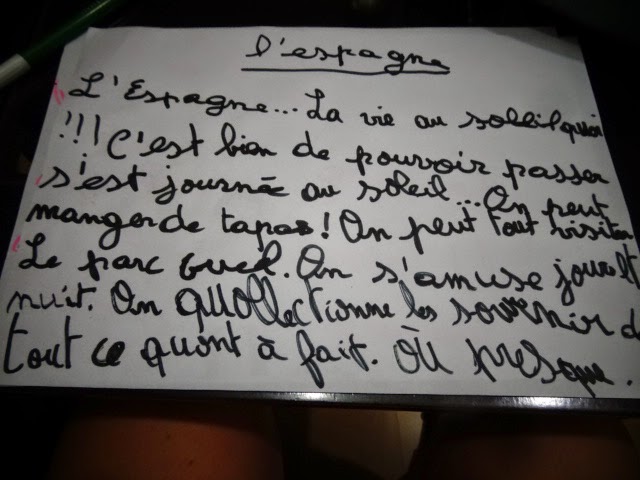 l'espagne
L'Espagne... La vie au soleil quoi
!!! C'est bien de pouvoir passer
s'est journée au soleil... On peut
manger de tapas! On peut tout visiter
Le parc Guel. On s'amuse jour et
nuit. On quollectionne les souvenir de
tout ce quont à fait. Où presque.